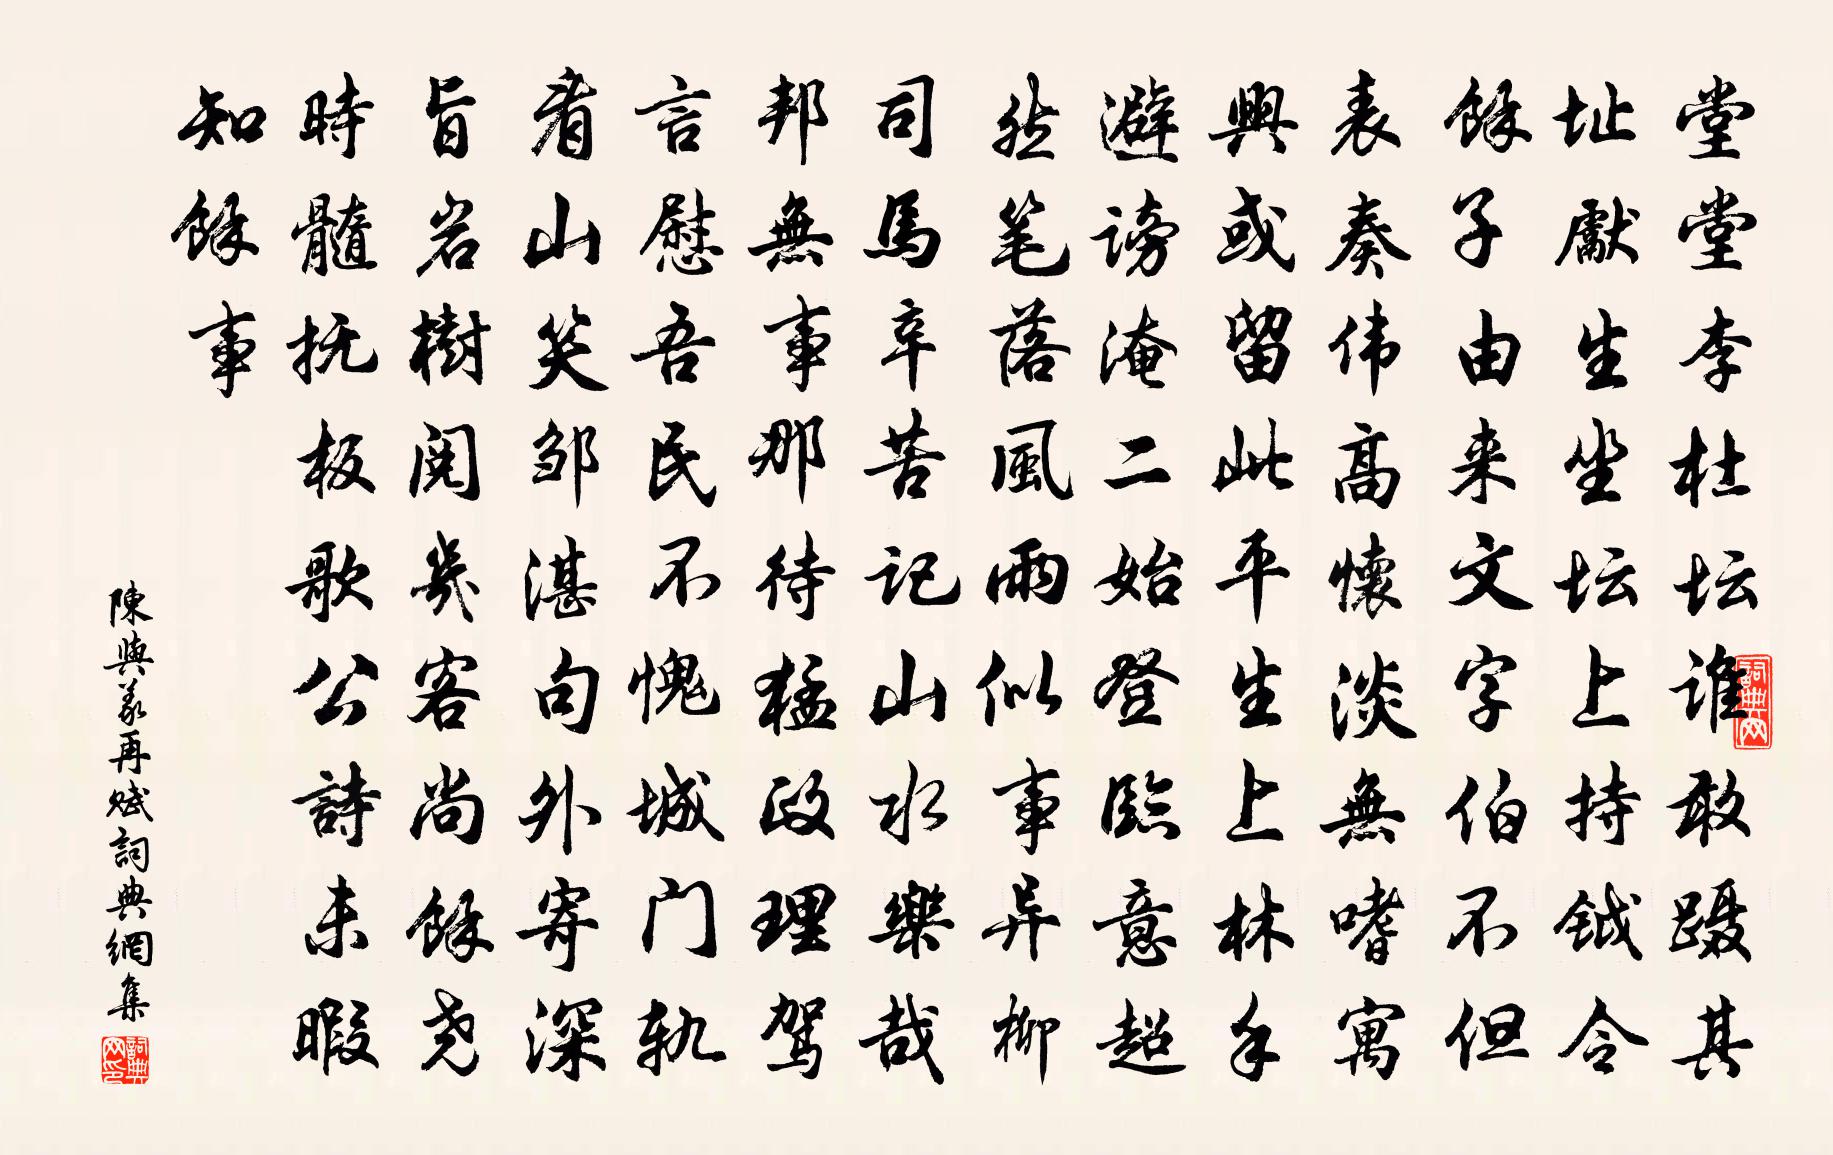 堂堂李杜坛谁敢蹑其
址獻生坐坛上持钺令
餘子由来文字伯不但
表奏伟高懷淡無嗜寓
興或留此平生上林手
避谤淹二始登臨意超
然笔落風雨似事异柳
司馬辛苦记山水樂哉
邦無事那待猛政理驾
言慰吾民不愧城门轨
看山笑邹湛句外寄深
旨岩樹阅幾客尚餘尧
時髓抚板歌公詩未暇
知餘事
陳與義再赋詞典網集
詞典网
詞典网